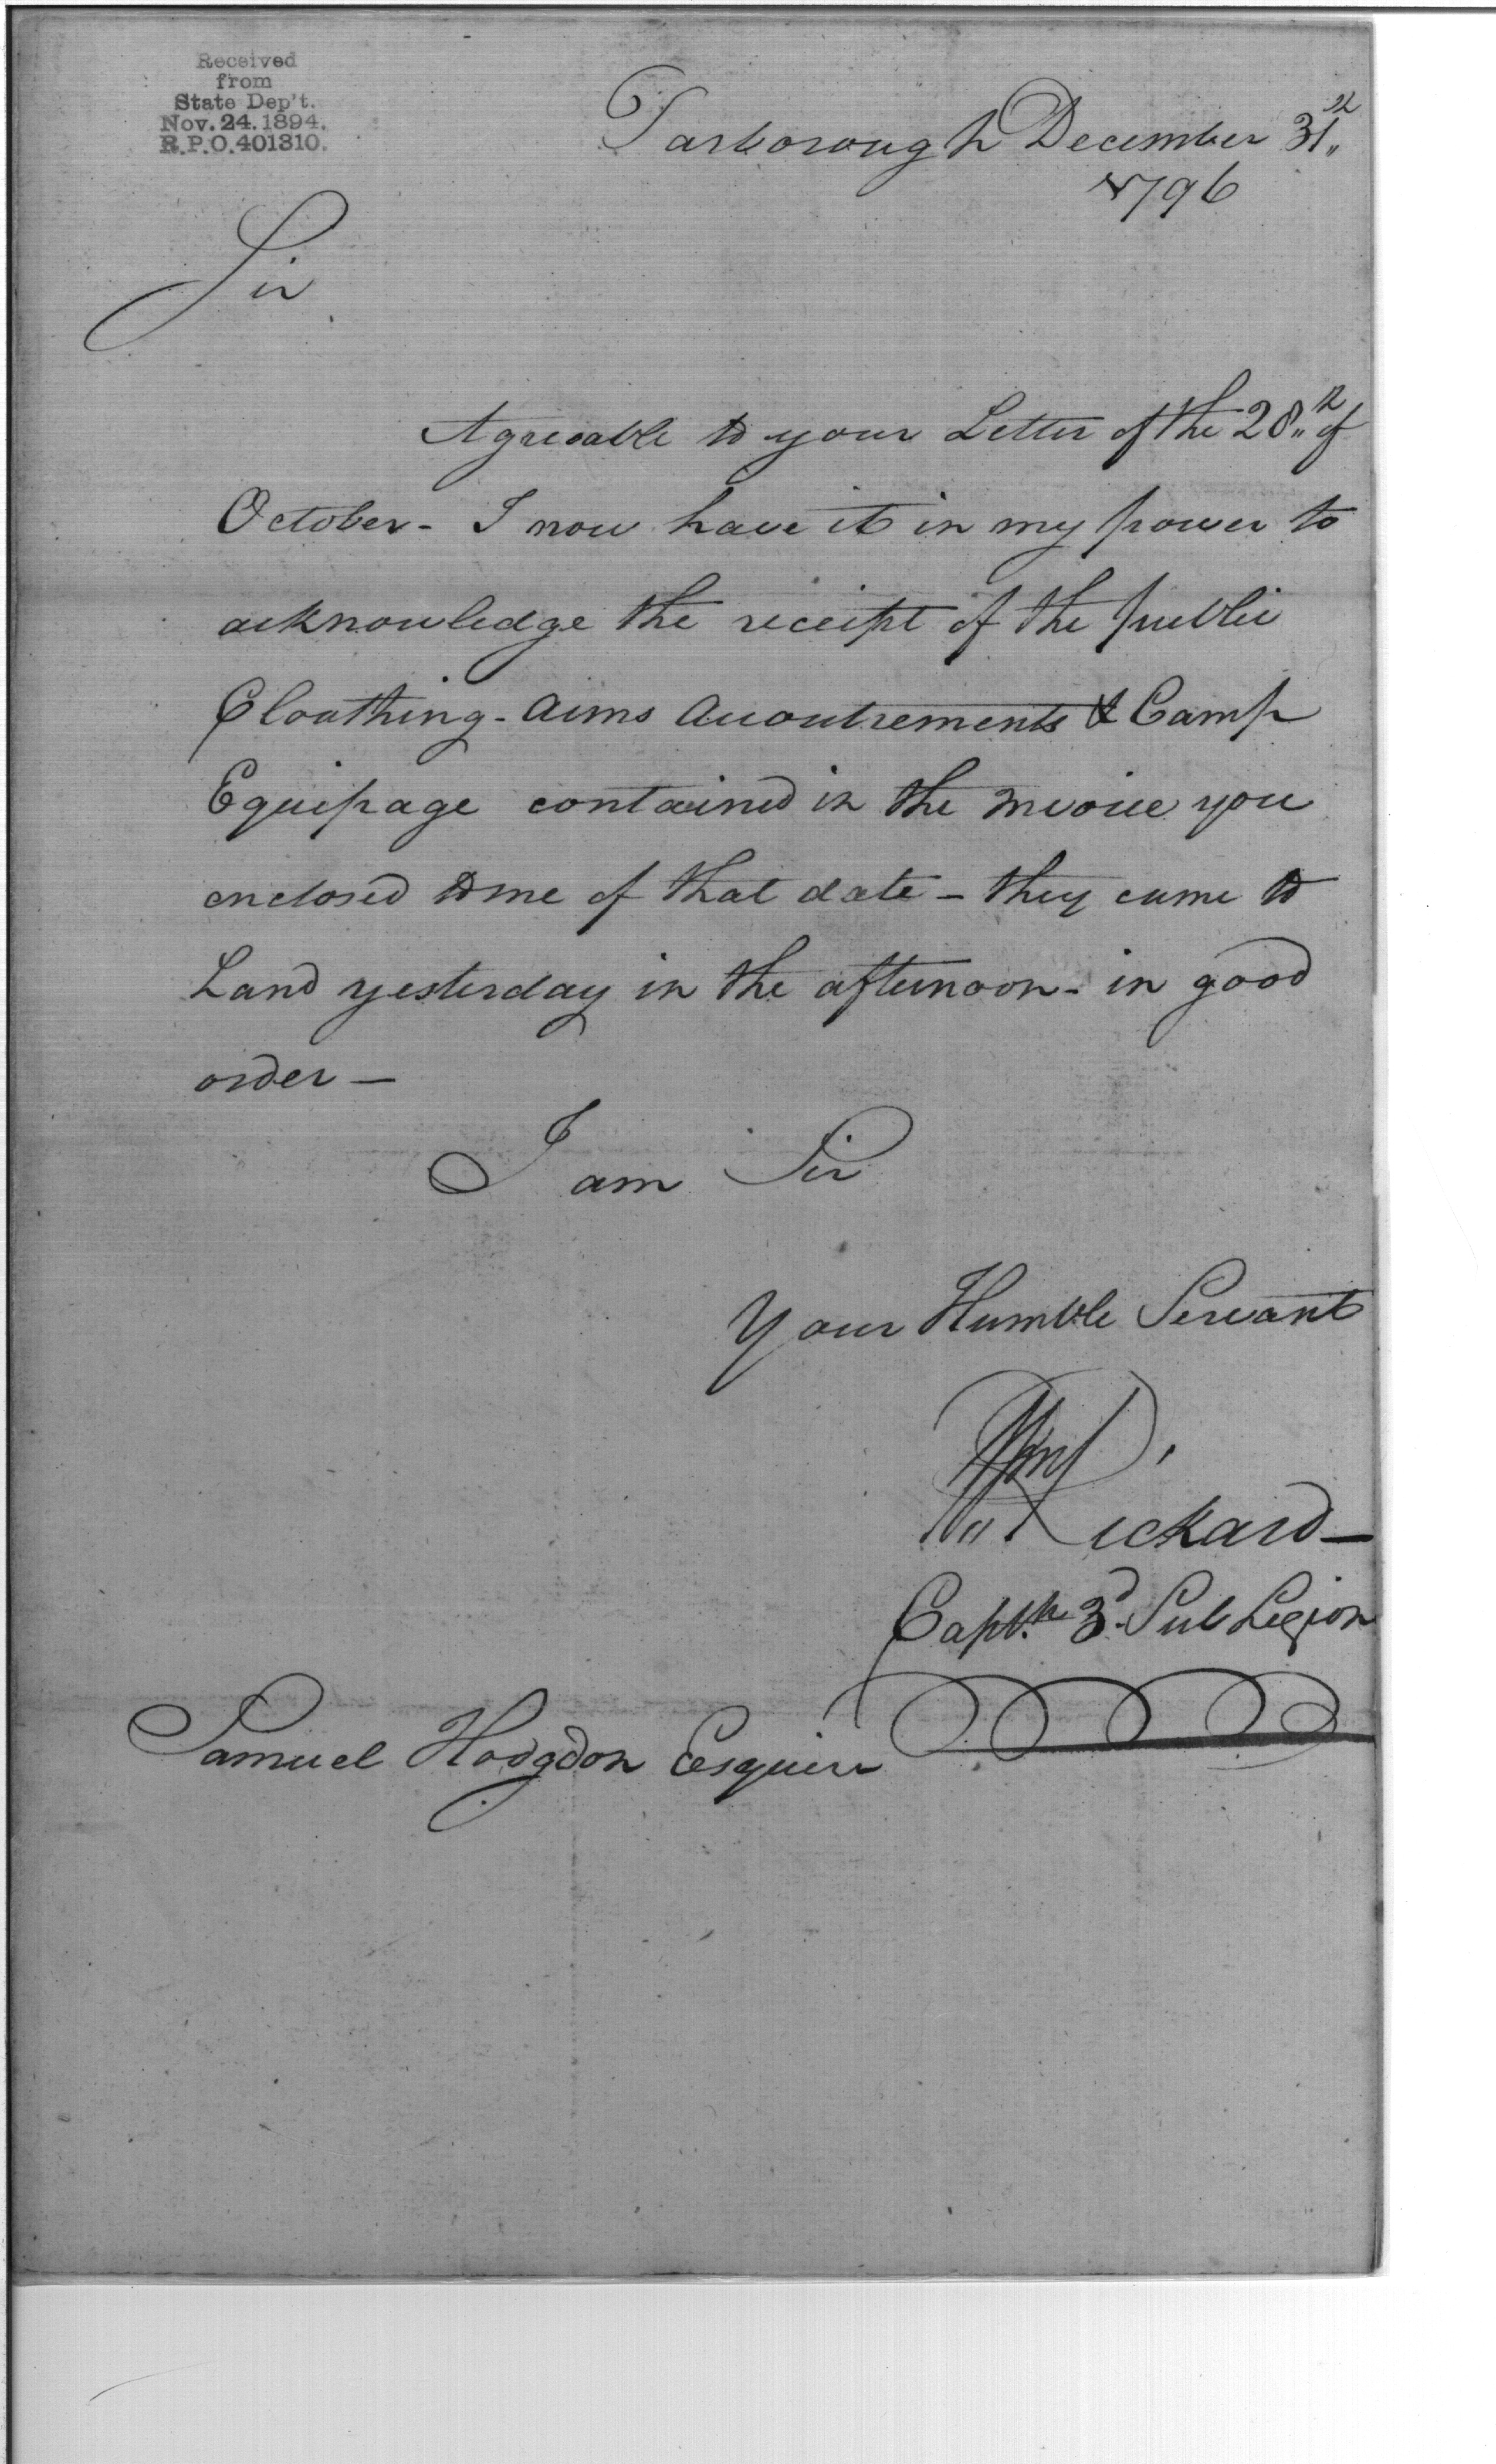 Received
from
State Dep't.
Nov. 24. 1894.
R.P.O. 401310.
Tarborough December 31st
1796
Sir
Agreeable to your Letter of the 28th of
October - I now have it in my power to
acknowledge the receipt of the public
Cloathing - Arms Accoutrements & Camp
Equipage contained in the Invoice you
enclosed to me of that date - they came to
Land yesterday in the afternoon - in good
order -
I am Sir
Your Humble Servant
Wm
Rickard -
Captn 3d Sub Legion
Samuel Hodgdon Esquire